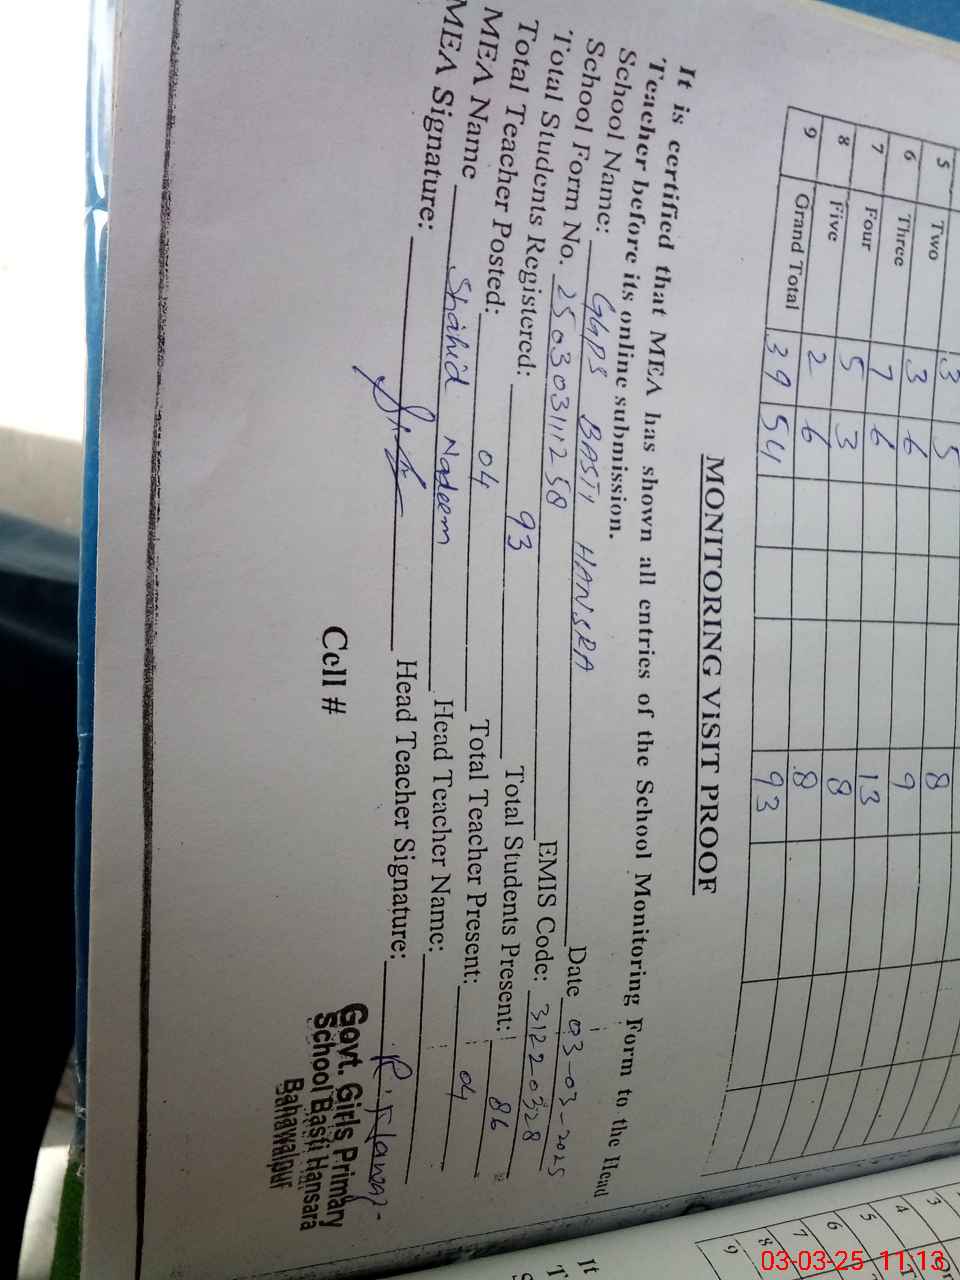 5 Two 3 5 8
6 Three 3 6 9
7 Four 7 6 13
8 Five 5 3 8
9 Grand Total 39 54 93
MONITORING VISIT PROOF
It is certified that MEA has shown all entries of the School Monitoring Form to the Head
Teacher before its online submission.
School Name: GGPS BASTI HANSRA Date 03-03-2025
School Form No. 25030311258 EMIS Code: 31220328
Total Students Registered: 93 Total Students Present: 86
Total Teacher Posted: 04 Total Teacher Present: 04
MEA Name Shahid Nadeem Head Teacher Name:
MEA Signature: Head Teacher Signature:
Cell #
Govt. Girls Primary
School Basti Hansara
Bahawalpur
3
4
5
6
7
8
9
It
T
03-03-25 11:13